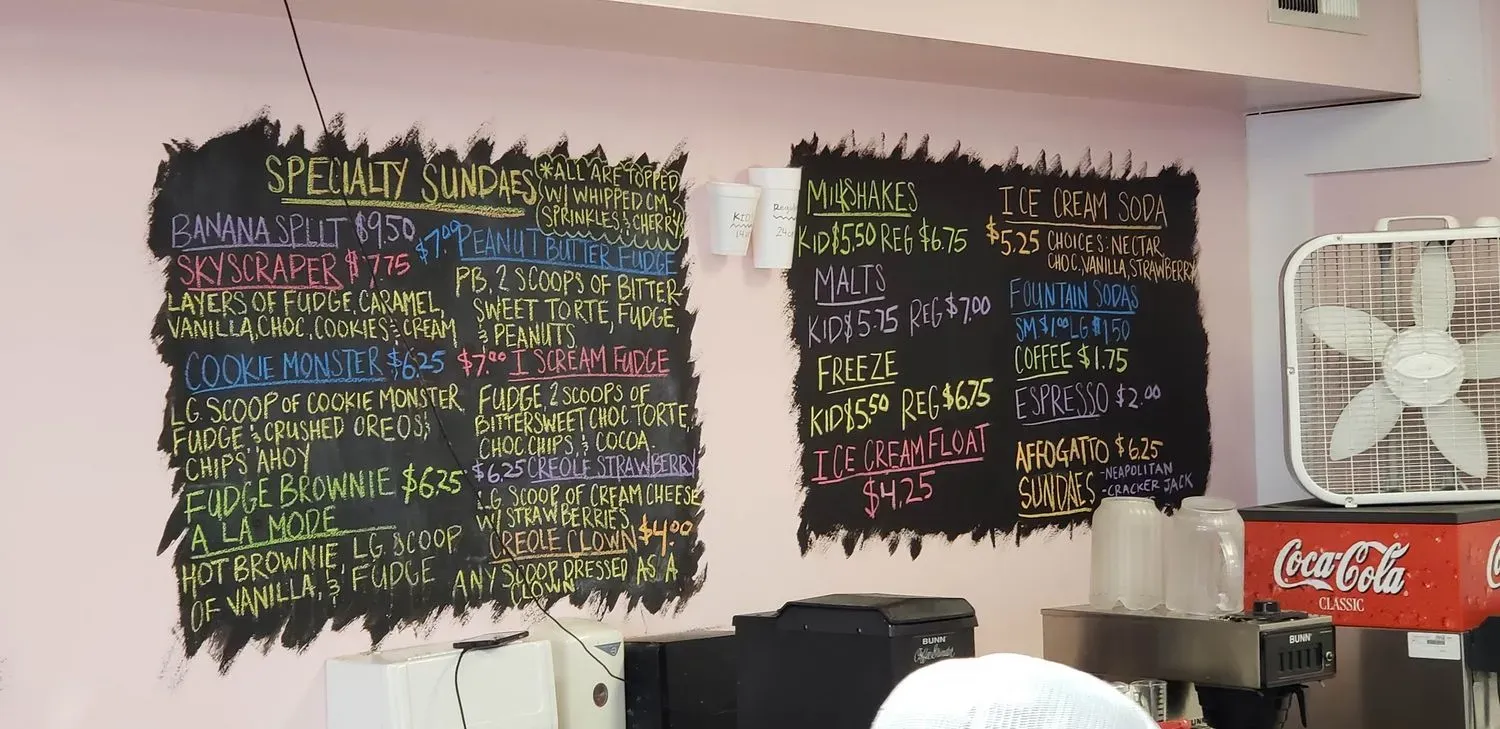 SPECIALTY SUNDAES
*ALL ARE TOPPED
W/ WHIPPED CM.
SPRINKLES & CHERRY
BANANA SPLIT $9.50
SKYSCRAPER $7.75
LAYERS OF FUDGE, CARAMEL,
VANILLA, CHOC, COOKIES & CREAM
COOKIE MONSTER $6.25
LG. SCOOP OF COOKIE MONSTER
FUDGE & CRUSHED OREOS &
CHIPS AHOY
FUDGE BROWNIE $6.25
A LA MODE
HOT BROWNIE, LG. SCOOP
OF VANILLA, & FUDGE
$7.00 PEANUT BUTTER FUDGE
PB, 2 SCOOPS OF BITTER-
SWEET TORTE, FUDGE,
& PEANUTS
$7.00 I SCREAM FUDGE
FUDGE 2 SCOOPS OF
BITTERSWEET CHOC TORTE,
CHOC CHIPS, & COCOA
$6.25 CREOLE STRAWBERRY
LG SCOOP OF CREAM CHEESE
W/ STRAWBERRIES
CREOLE CLOWN $4.00
ANY SCOOP DRESSED AS A
CLOWN
KID
Regular
MILKSHAKES
KID $5.50 REG $6.75
MALTS
KID $5.75 REG $7.00
FREEZE
KID $5.50 REG $6.75
ICE CREAM FLOAT
$4.25
ICE CREAM SODA
$5.25 CHOICES: NECTAR,
CHOC, VANILLA, STRAWBERRY
FOUNTAIN SODAS
SM $1.00 LG $1.50
COFFEE $1.75
ESPRESSO $2.00
AFFOGATTO $6.25
SUNDAES -NEAPOLITAN
-CRACKER JACK
Coca-Cola
CLASSIC
BUNN
BUNN